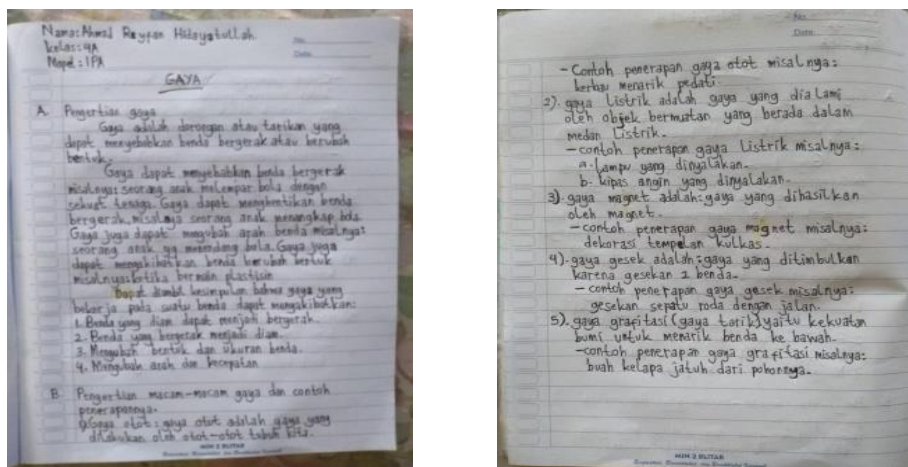 Nama: Ahmad Rayfan Hidayatullah.
Kelas: 4A
Mapel: IPA
No.
Date.
GAYA
A. Pengertian gaya
Gaya adalah dorongan atau tarikan yang
dapat menyebabkan benda bergerak atau berubah
bentuk.
Gaya dapat menyebabkan benda bergerak
misalnya: seorang anak melempar bola dengan
sekuat tenaga. Gaya dapat menghentikan benda
bergerak, misalnya seorang anak menangkap bola.
Gaya juga dapat mengubah arah benda misalnya:
seorang anak yg menendang bola. Gaya juga
dapat mengakibatkan benda berubah bentuk
misalnya: ketika bermain plastisin
Dapat diambil kesimpulan bahwa gaya yang
bekerja pada suatu benda dapat mengakibatkan:
1. Benda yang diam dapat menjadi bergerak.
2. Benda yang bergerak menjadi diam.
3. Mengubah bentuk dan ukuran benda.
4. Mengubah arah dan kecepatan
B. Pengertian macam-macam gaya dan contoh
penerapannya.
1) Gaya otot: gaya otot adalah gaya yang
dilakukan oleh otot-otot tubuh kita.
MIN 2 BLITAR
No.
Date.
- Contoh penerapan gaya otot misalnya:
kerbau menarik pedati.
2). gaya Listrik adalah gaya yang dialami
oleh objek bermuatan yang berada dalam
medan Listrik.
- contoh penerapan gaya Listrik misalnya:
a. lampu yang dinyalakan.
b. kipas angin yang dinyalakan.
3). gaya magnet adalah: gaya yang dihasilkan
oleh magnet.
- contoh penerapan gaya magnet misalnya:
dekorasi tempelan kulkas.
4). gaya gesek adalah: gaya yang ditimbulkan
karena gesekan 2 benda.
- contoh penerapan gaya gesek misalnya:
gesekan sepatu roda dengan jalan.
5). gaya grafitasi (gaya tarik) yaitu kekuatan
bumi untuk menarik benda ke bawah.
- contoh penerapan gaya grafitasi misalnya:
buah kelapa jatuh dari pohonnya.
MIN 2 BLITAR